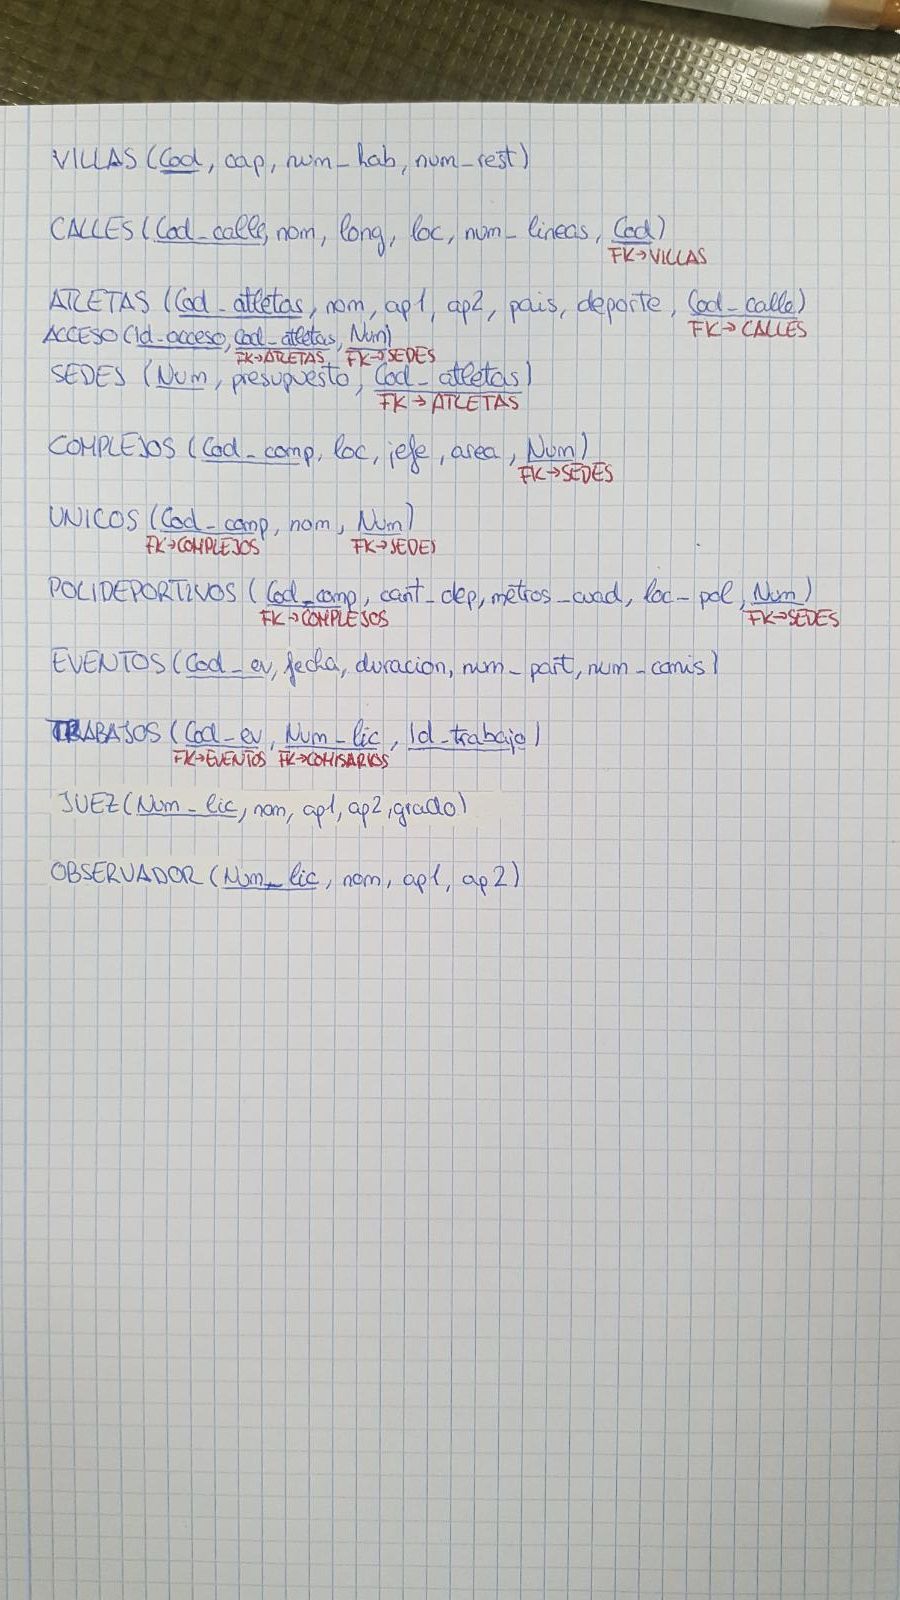 VILLAS (Cod, cap, num_hab, num_rest)
CALLES (Cod_calle, nom, long, loc, num_lineas, Cod)
FK→VILLAS
ATLETAS (Cod_atletas, nom, ap1, ap2, pais, deporte, Cod_calle)
FK→CALLES
ACCESO (Id_acceso, Cod_atletas, Num)
FK→ATLETAS, FK→SEDES
SEDES (Num, presupuesto, Cod_atletas)
FK→ATLETAS
COMPLEJOS (Cod_comp, loc, jefe, area, Num)
FK→SEDES
UNICOS (Cod_comp, nom, Num)
FK→COMPLEJOS FK→SEDES
POLIDEPORTIVOS (Cod_comp, cant_dep, metros_cuad, loc_pol, Num)
FK→COMPLEJOS FK→SEDES
EVENTOS (Cod_ev, fecha, duracion, num_part, num_comis)
TRABAJOS (Cod_ev, Num_lic, Id_trabajo)
FK→EVENTOS FK→COMISARIOS
JUEZ (Num_lic, nom, ap1, ap2, grado)
OBSERVADOR (Num_lic, nom, ap1, ap2)